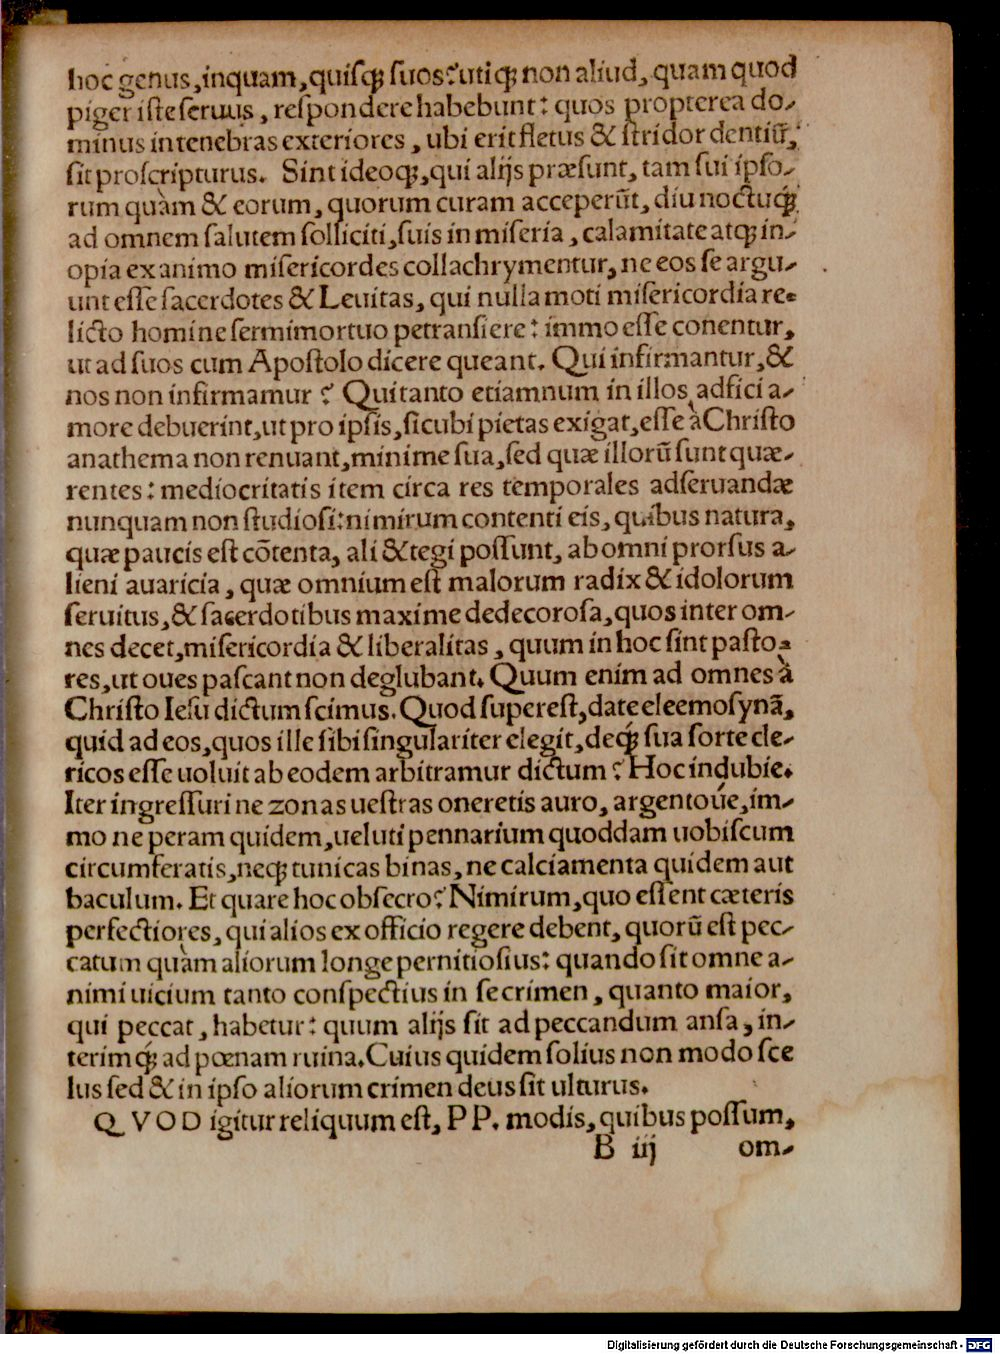 hoc genus, inquam, quiſqꝫ ſuos? utiqꝫ non aliud, quam quod
piger iſte ſeruus, reſpondere habebunt: quos propterea do-
minus in tenebras exteriores, ubi erit fletus & ſtridor dentiũ,
ſit proſcripturus. Sint ideoqꝫ, qui alijs præſunt, tam ſui ipſo-
rum quàm & eorum, quorum curam acceperũt, diu noctuqꝫ
ad omnem ſalutem ſolliciti, ſuis in miſeria, calamitate atqꝫ in-
opia ex animo miſericordes collachrymentur, ne eos ſe argu-
unt eſſe ſacerdotes & Leuitas, qui nulla moti miſericordia re-
licto homine ſermimortuo petranſiere: immo eſſe conentur,
ut ad ſuos cum Apoſtolo dicere queant. Qui infirmantur, &
nos non infirmamur? Qui tanto etiamnum in illos adfici a-
more debuerint, ut pro ipſis, ſicubi pietas exigat, eſſe à Chriſto
anathema non renuant, minime ſua, ſed quæ illorũ ſunt quæ-
rentes: mediocritatis item circa res temporales adſeruandæ
nunquam non ſtudioſi: nimirum contenti eis, quibus natura,
quæ paucis eſt cõtenta, ali & tegi poſſunt, ab omni prorſus a-
lieni auaricia, quæ omnium eſt malorum radix & idolorum
ſeruitus, & ſacerdotibus maxime dedecoroſa, quos inter om-
nes decet, miſericordia & liberalitas, quum in hoc ſint paſto-
res, ut oues paſcant non deglubant. Quum enim ad omnes à
Chriſto Ieſu dictum ſcimus. Quod ſupereſt, date eleemoſynã,
quid ad eos, quos ille ſibi ſingulariter elegit, deqꝫ́ ſua ſorte cle-
ricos eſſe uoluit ab eodem arbitramur dictum? Hoc indubie.
Iter ingreſſuri ne zonas ueſtras oneretis auro, argentoúe, im-
mo ne peram quidem, ueluti pennarium quoddam uobiſcum
circumferatis, neqꝫ tunicas binas, ne calciamenta quidem aut
baculum. Et quare hoc obſecro? Nimirum, quo eſſent cæteris
perfectiores, qui alios ex officio regere debent, quorũ eſt pec-
catum quàm aliorum longe pernitioſius: quando ſit omne a-
nimi uicium tanto conſpectius in ſe crimen, quanto maior,
qui peccat, habetur: quum alijs ſit ad peccandum anſa, in-
terimqꝫ́ ad pœnam ruina. Cuius quidem ſolius non modo ſce
lus ſed & in ipſo aliorum crimen deus ſit ulturus.
QVOD igitur reliquum eſt, PP. modis, quibus poſſum,
B iij om-
Digitalisierung gefördert durch die Deutsche Forschungsgemeinschaft - DFG